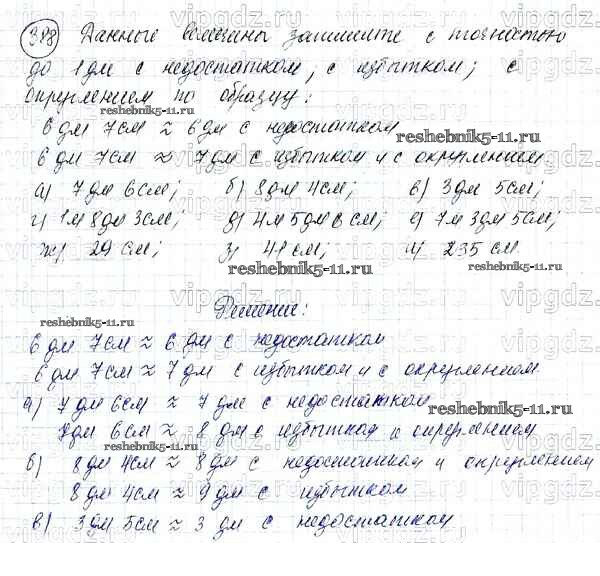 398 Данные величины запишите с точностью
до 1 дм с недостатком; с избытком; с
округлением по образцу:
6 дм 7 см ≈ 6 дм с недостатком
reshebnik5-11.ru
6 дм 7 см ≈ 7 дм с избытком и с округлением
а) 7 дм 6 см; б) 8 дм 4 см; в) 3 дм 5 см;
г) 1 м 8 дм 3 см; д) 4 м 5 дм 6 см; е) 7 м 3 дм 5 см;
ж) 29 см; з) 41 см; и) 235 см
reshebnik5-11.ru
Решение:
reshebnik5-11.ru
6 дм 7 см ≈ 6 дм с недостатком
6 дм 7 см ≈ 7 дм с избытком и с округлением
а) 7 дм 6 см ≈ 7 дм с недостатком
reshebnik5-11.ru
7 дм 6 см ≈ 8 дм с избытком и округлением
reshebnik5-11.ru
б) 8 дм 4 см ≈ 8 дм с недостатком и округлением
8 дм 4 см ≈ 9 дм с избытком
в) 3 дм 5 см ≈ 3 дм с недостатком
reshebnik5-11.ru